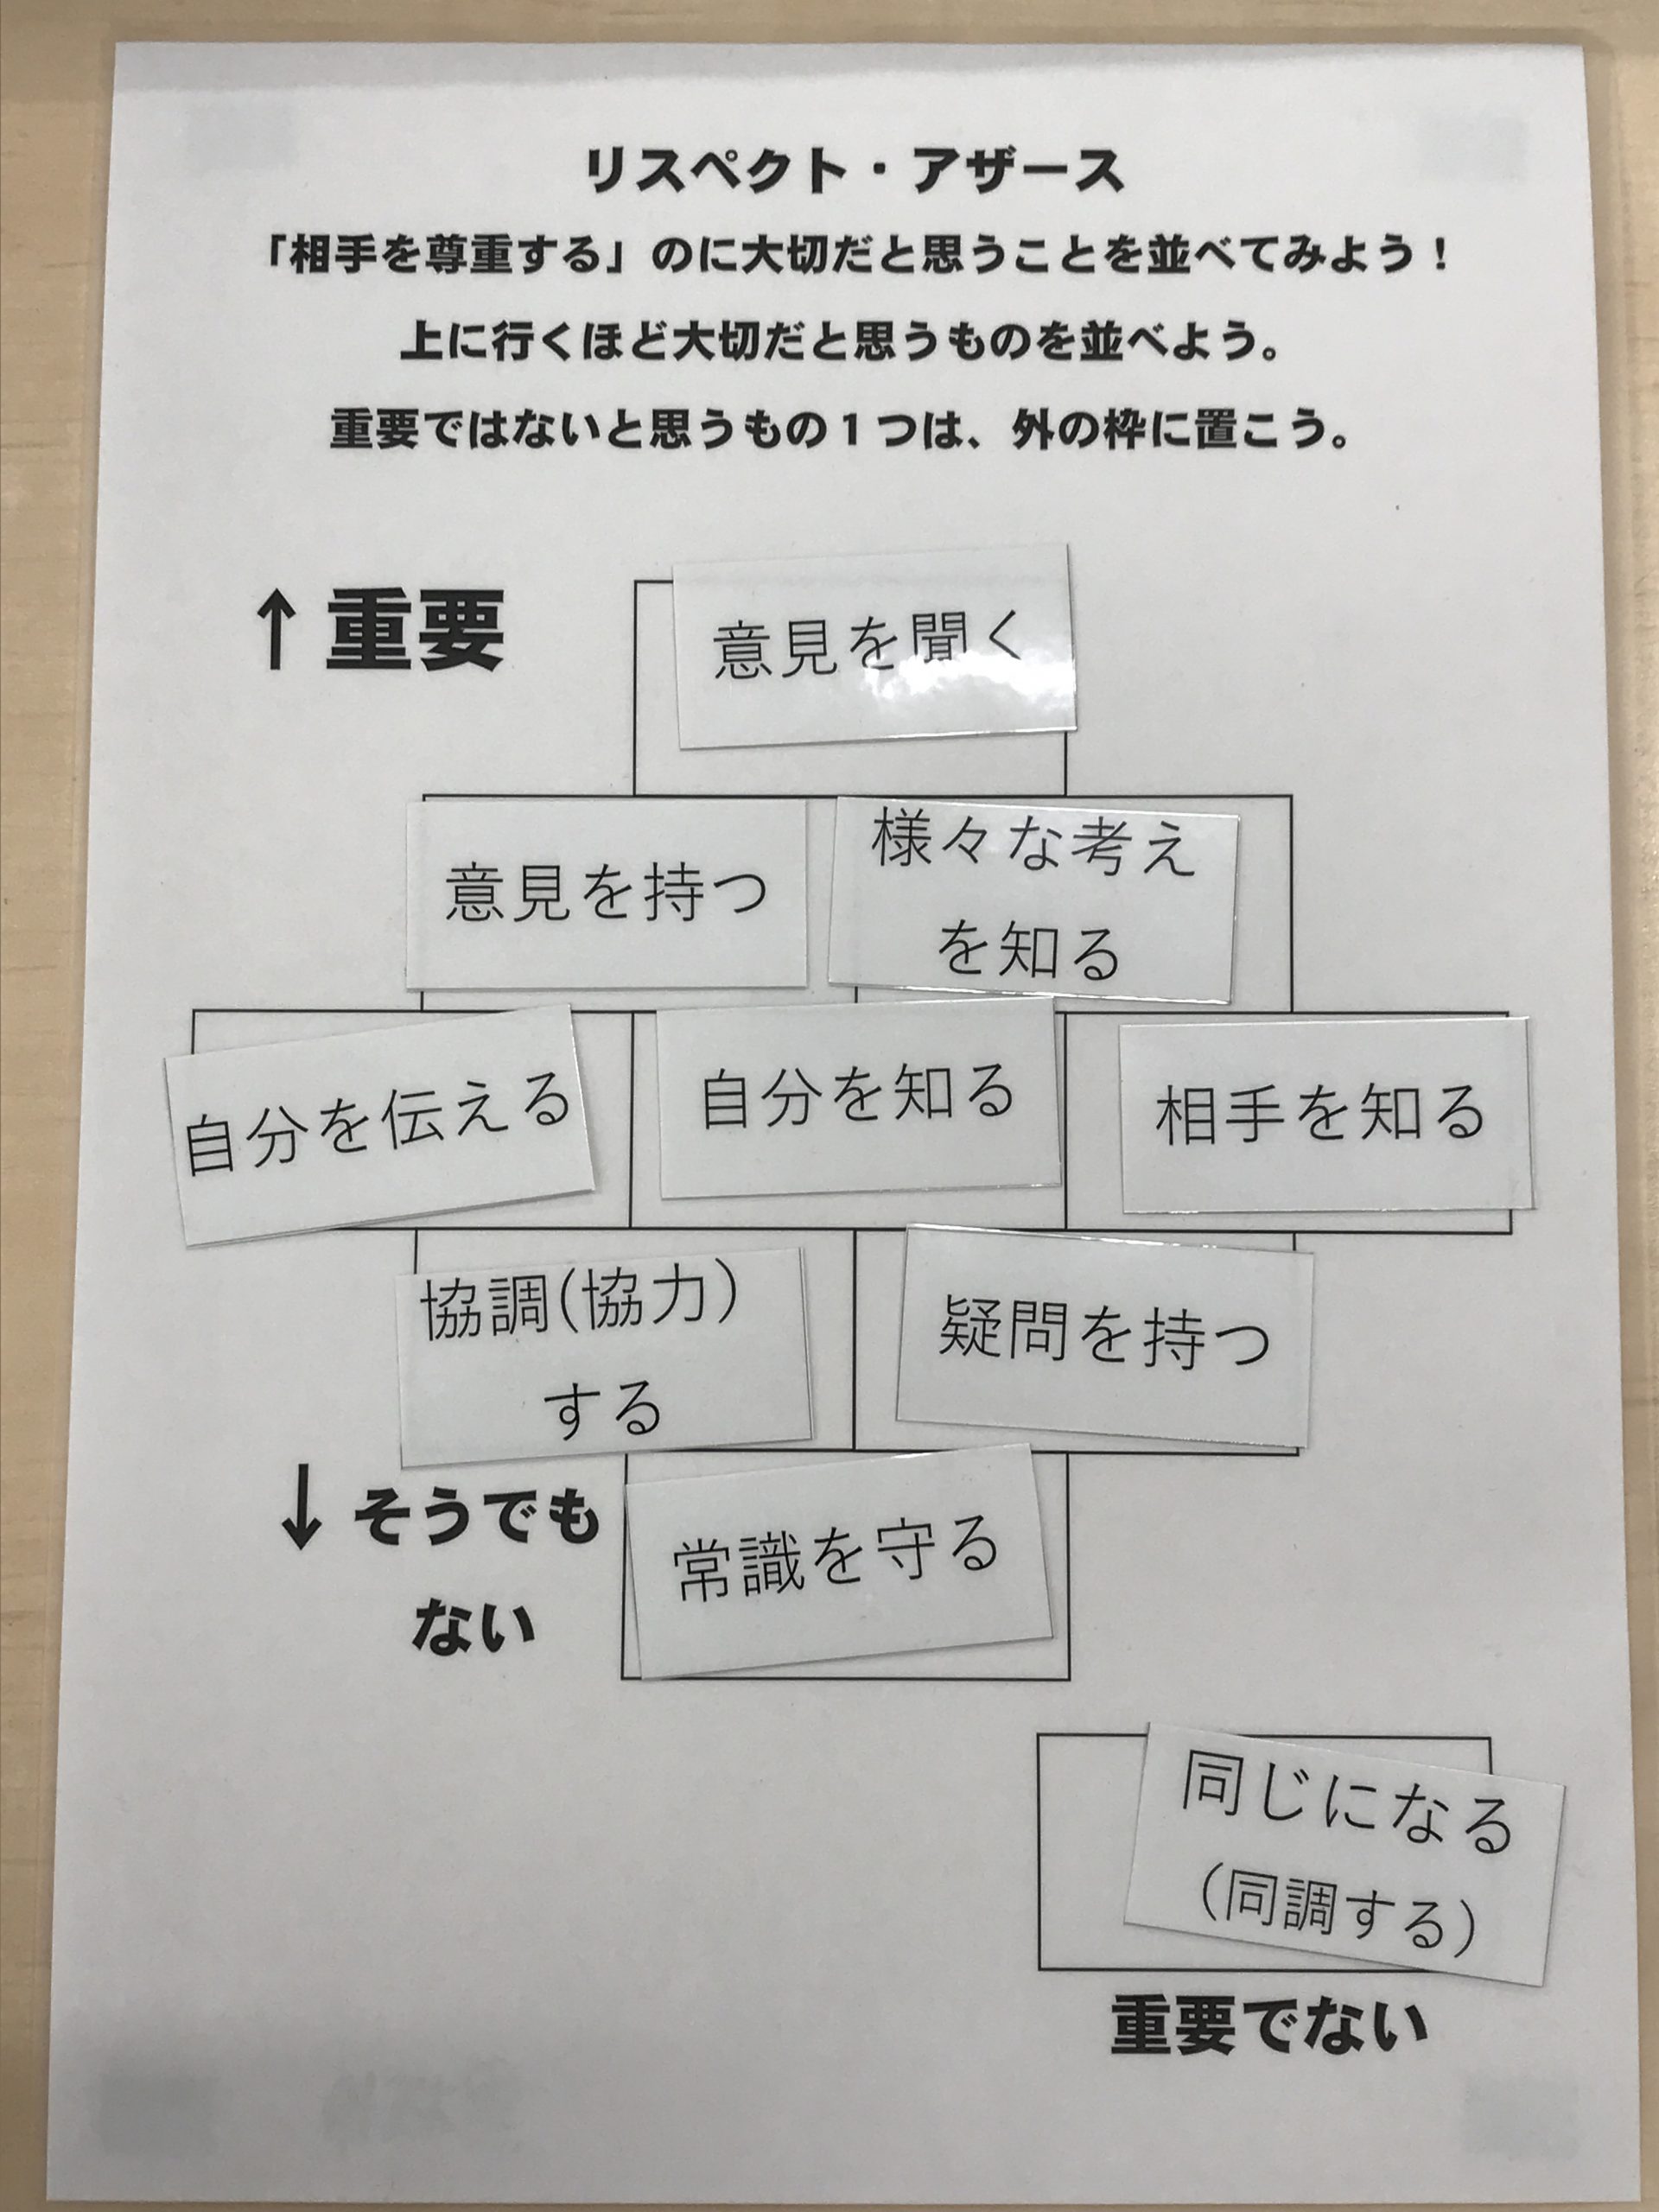 リスペクト・アザース
「相手を尊重する」のに大切だと思うことを並べてみよう！
上に行くほど大切だと思うものを並べよう。
重要ではないと思うもの１つは、外の枠に置こう。
↑重要
意見を聞く
意見を持つ
様々な考え
を知る
自分を伝える
自分を知る
相手を知る
協調(協力)
する
疑問を持つ
↓そうでも
ない
常識を守る
同じになる
(同調する)
重要でない